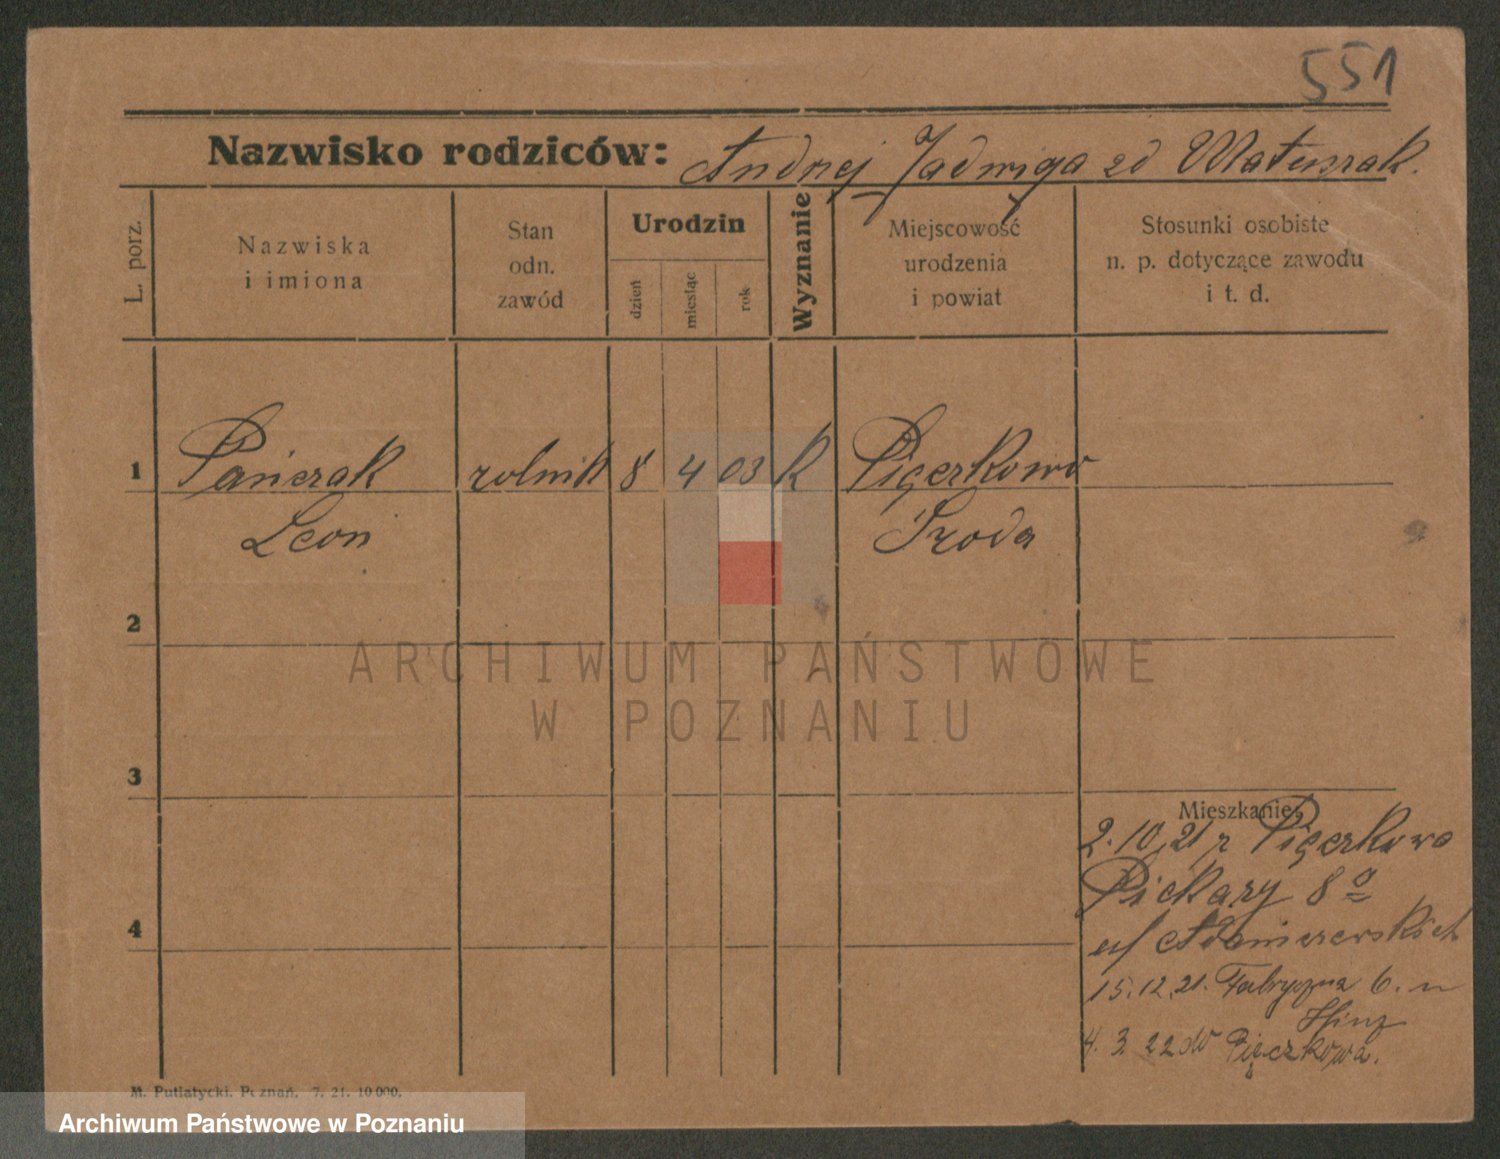 551
Nazwisko rodziców: Andrzej Jadwiga zd Matuszak.
L. porz.
Nazwiska
i imiona
Stan
odn.
zawód
Urodzin
dzień
miesiąc
rok
Wyznanie
Miejscowość
urodzenia
i powiat
Stosunki osobiste
n. p. dotyczące zawodu
i t. d.
1 Pańczak rolnik 8 4 03 k Pięczkowo
Leon Środa
2
3
4
Mieszkanie:
2.10.21 z Pięczkowo
Piekary 8a
u/ Adamczewskich
15.12.21. Fabryczna 6. u
Hinz
4.3.22 do Pięczkowa.
M. Putiatycki. Poznań. 7. 21. 10 000.
ARCHIWUM PAŃSTWOWE
W POZNANIU
Archiwum Państwowe w Poznaniu